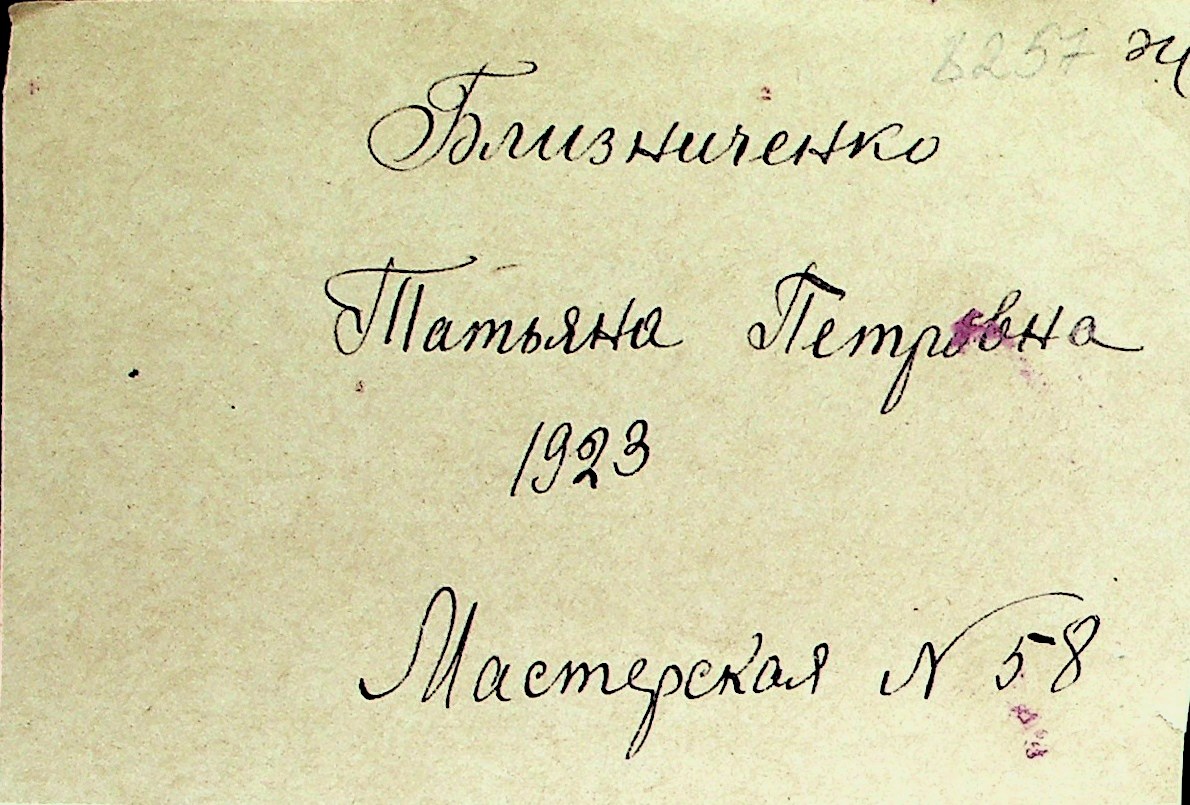 6257 Ж
Близниченко
Татьяна Петровна
1923
Мастерская N 58